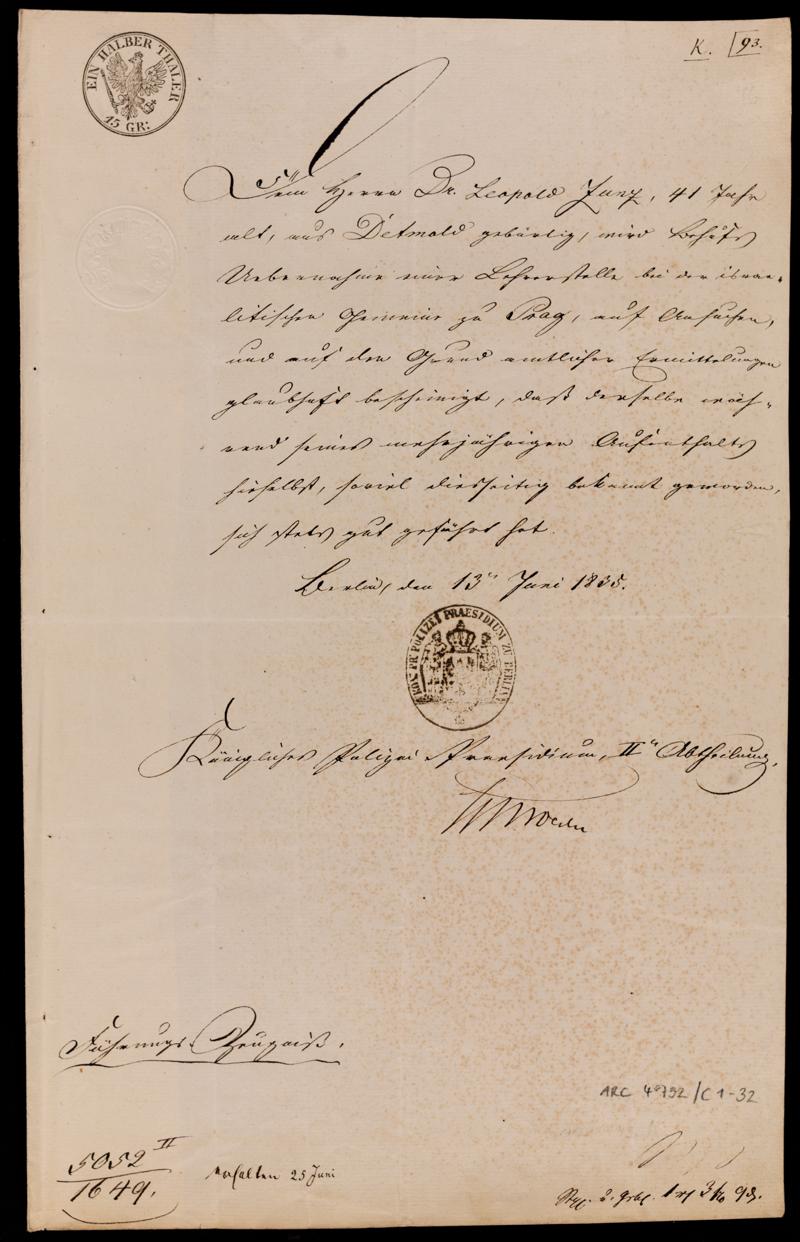 EIN HALBER THALER
15 GR:
K. 93.
Dem Herrn Dr. Leopold Zunz, 41 Jahr
alt, aus Detmold gebürtig, wird Behufs
Uebernahme einer Lehrerstelle bei der israe-
litischen Gemeine zu Prag, auf Ansuchen,
und auf den Grund amtlicher Ermittelungen
glaubhaft bescheinigt, daß derselbe wäh-
rend seines mehrjährigen Aufenthalts
hieselbst, soviel diesseitig bekannt geworden,
sich stets gut geführt hat.
Berlin, den 13n Juni 1835.
KÖN. PR. POLIZEI PRAESIDIUM ZU BERLIN
Königliches Polizei Praesidium, IIte Abtheilung.
Führungs Zeugniß.
ARC 4°792/C1-32
5052 II
1649.
erhalten 25 Juni